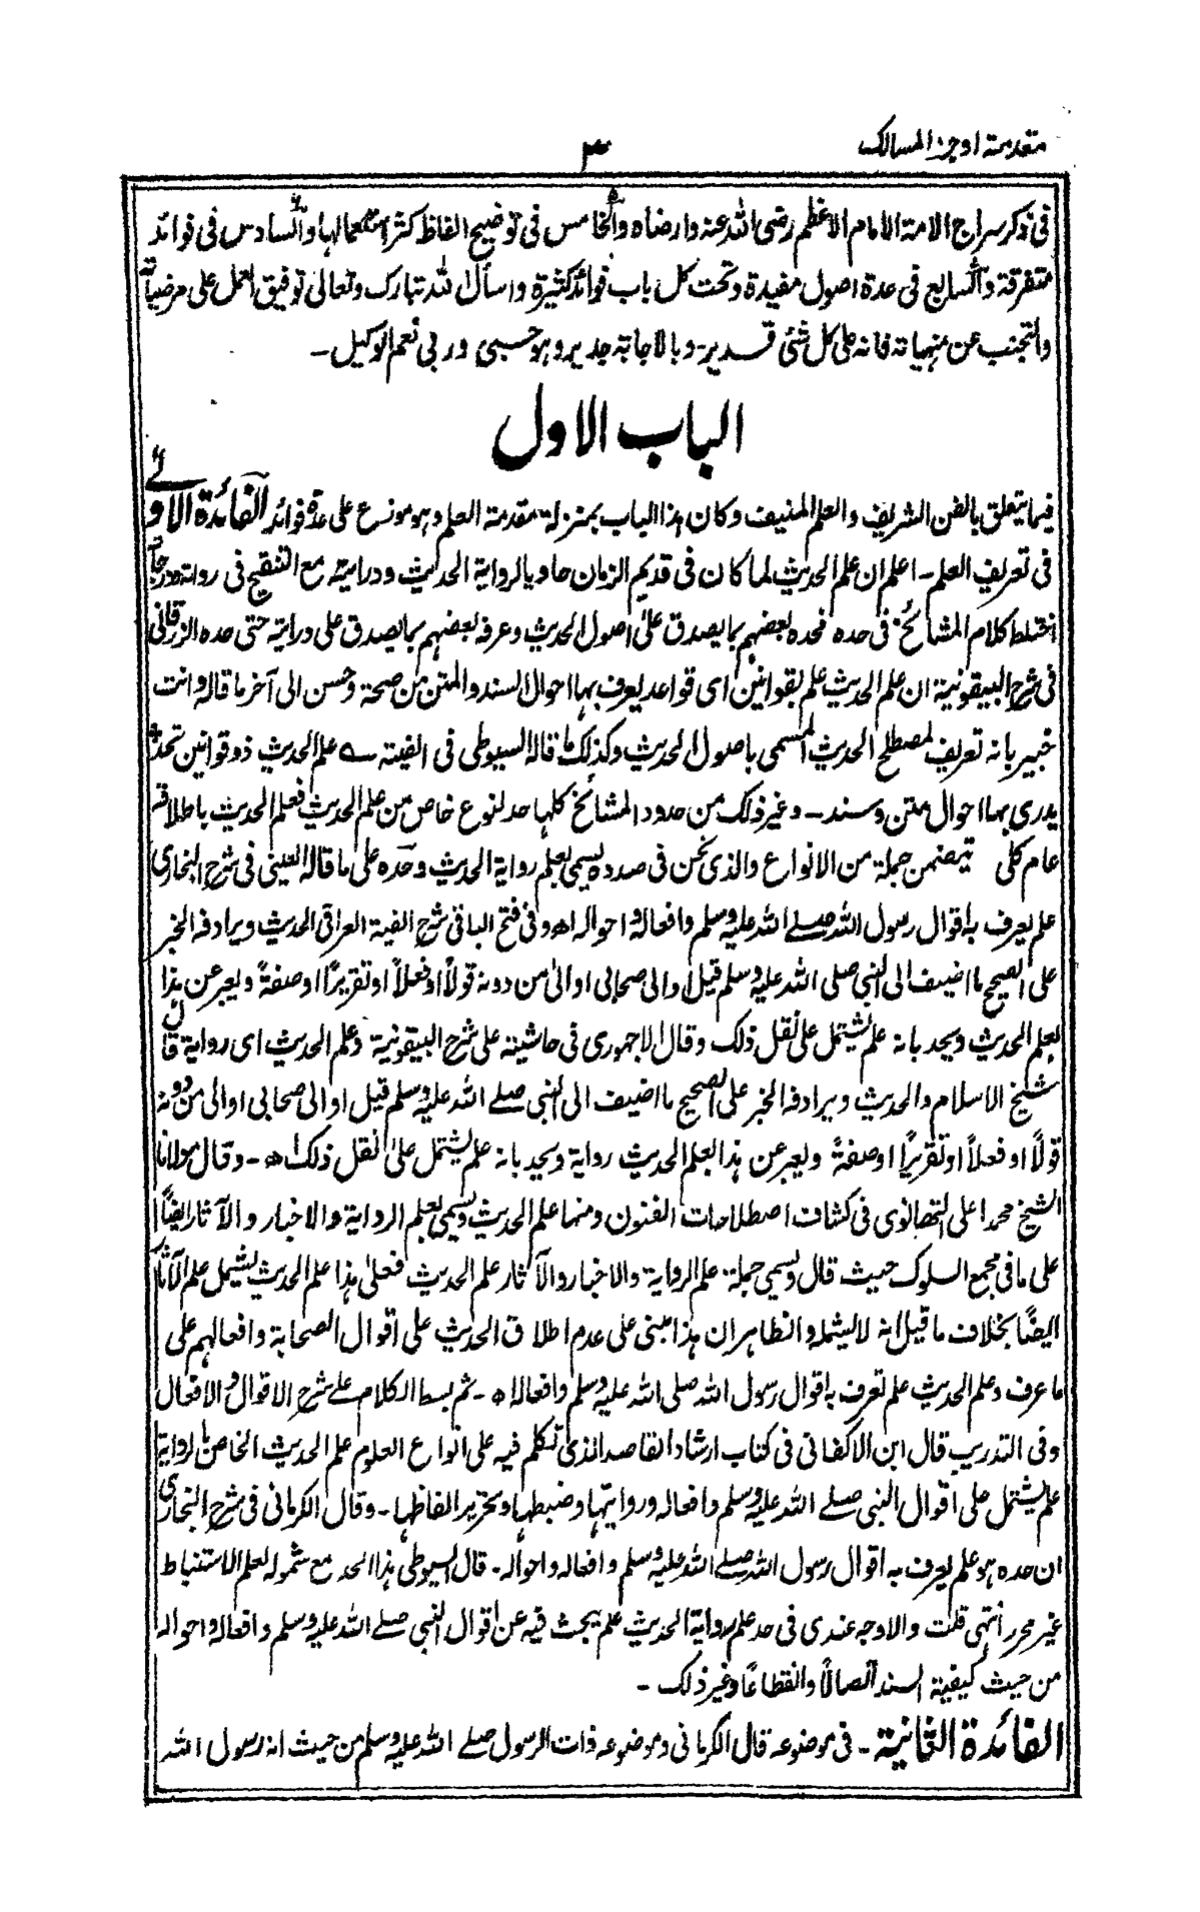 مقدمة اوجز المسالك
٣
فى ذكر سراج الامة الامام الاعظم رضى الله عنه وارضاه والخامس فى توضيح الفاظ كثر استعمالها والسادس فى فوائد
متفرقة والسابع فى عدة اصول مفيدة وتحت كل باب فوائد كثيرة واسأل الله تبارك وتعالى توفيق العمل على مرضياته
والتجنب عن منهياته فانه على كل شئ قدير۔ وبالاجابة جدير وهو حسبى وربى نعم الوكيل ۔
الباب الاول
فيما يتعلق بالفن الشريف والعلم المنيف وكان هذا الباب بمنزلة مقدمة العلم وهو موزع على عدة فوائد الفائدة الاولى
فى تعريف العلم ۔ اعلم ان علم الحديث لما كان فى قديم الزمان حاويا لرواية الحديث ودرايته مع التنقيح فى رواته ودرجاتهم
اختلط كلام المشائخ فى حده فحده بعضهم بما يصدق على اصول الحديث وعرفه بعضهم بما يصدق على دراية حتى حده الزرقانى
فى شرح البيقونية ان علم الحديث علم بقوانين اى قواعد يعرف بها احوال السند والمتن من صحة وحسن الى آخر ما قاله وانت
خبير بانه تعريف لمصطلح الحديث المسمى باصول الحديث وكذلك ما قاله السيوطى فى الفيته ے علم الحديث ذو قوانين تحد
يدرى بها احوال متن وسند ۔ وغير ذلك من حدود المشائخ كلها حد لنوع خاص من علم الحديث فعلم الحديث باطلاقه
عام كلى يتضمن جملة من الانواع والذى نحن فى صدده يسمى بعلم رواية الحديث وحده على ما قاله العينى فى شرح البخارى
علم يعرف به اقوال رسول الله صلے الله عليه وسلم وافعاله واحواله اھ وفى فتح الباقى شرح الفية العراقى الحديث ويرادفه الخبر
على الصحيح ما اضيف الى النبى صلى الله عليه وسلم قيل او الى صحابى او الى من دونه قولاً او فعلاً او تقريرًا او صفةً ويعبر عن هذا
بعلم الحديث ويحد بانه علم يشتمل على نقل ذلك وقال الاجهورى فى حاشيته على شرح البيقونية وعلم الحديث اى رواية قال
شيخ الاسلام والحديث ويرادفه الخبر على الصحيح ما اضيف الى النبى صلے الله عليه وسلم قيل او الى صحابى او الى من دونه
قولاً او فعلاً او تقريرًا او صفةً ويعبر عن هذا بعلم الحديث رواية ويحد بانه علم يشتمل على نقل ذلك اھ ۔ وقال مولانا
الشيخ محمد اعلى التهانوى فى كشاف اصطلاحات الفنون ومنها علم الحديث ويسمى بعلم الرواية والاخبار والآثار ايضاً
على ما فى مجمع السلوك حيث قال ويسمى جملة علم الرواية والاخبار والآثار علم الحديث فعلى هذا علم الحديث يشمل علم الآثار
ايضًا بخلاف ما قيل انه لا يشمله والظاهر ان هذا مبنى على عدم اطلاق الحديث على اقوال الصحابة وافعالهم على
ما عرف وعلم الحديث علم تعرف به اقوال رسول الله صلى الله عليه وسلم وافعاله اھ ۔ ثم بسط الكلام على شرح الاقوال والافعال
وفى التدريب قال ابن الاكفانى فى كتاب ارشاد القاصد الذى تكلم فيه على انواع العلوم علم الحديث الخاص بالرواية
علم يشتمل على اقوال النبى صلے الله عليه وسلم وافعاله وروايتها وضبطها وتحرير الفاظها ۔ وقال الكرمانى فى شرح البخارى
ان حده هو علم يعرف به اقوال رسول الله صلے الله عليه وسلم وافعاله واحواله ۔ قال السيوطى هذا الحد مع شموله لعلم الاستنباط
غير محرر انتهى قلت والاوجه عندى فى حد علم رواية الحديث علم يبحث فيه عن اقوال النبى صلے الله عليه وسلم وافعاله واحواله
من حيث كيفية السند اتصالاً وانقطاعًا وغير ذلك ۔
الفائدة الثانية ۔ فى موضوعه قال الكرمانى وموضوعه ذات الرسول صلے الله عليه وسلم من حيث انه رسول الله